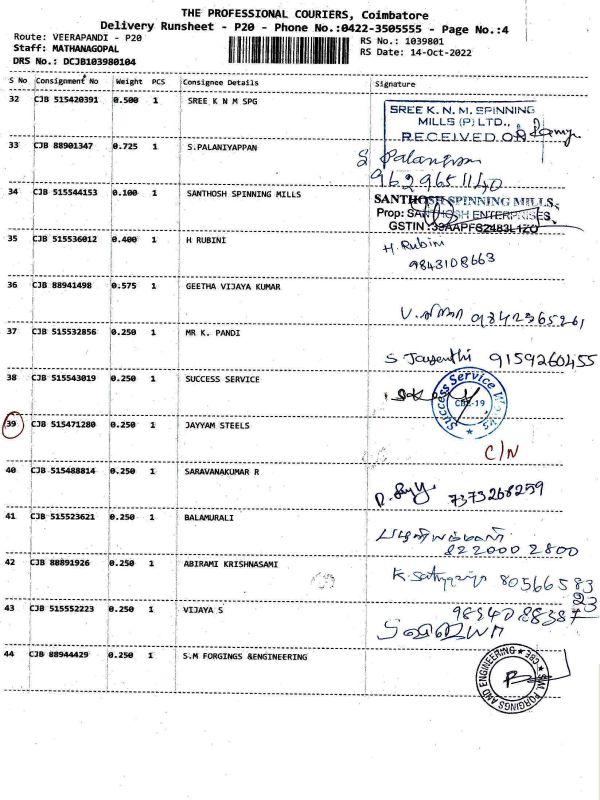 THE PROFESSIONAL COURIERS, Coimbatore
Delivery Runsheet - P20 - Phone No.:0422-3505555 - Page No.:4
Route: VEERAPANDI - P20 RS No.: 1039801
Staff: MATHANAGOPAL RS Date: 14-Oct-2022
DRS No.: DCJB103980104
S No Consignment No Weight PCS Consignee Details Signature
32 CJB 515420391 0.500 1 SREE K N M SPG
SREE K. N. M. SPINNING
MILLS (P) LTD.,
RECEIVED ON
33 CJB 88901347 0.725 1 S.PALANIYAPPAN
S
9629651140
34 CJB 515544153 0.100 1 SANTHOSH SPINNING MILLS
SANTHOSH SPINNING MILLS,
Prop: SANTHOSH ENTERPRISES,
GSTIN
35 CJB 515536012 0.400 1 H RUBINI
H. Rubini
9843108663
36 CJB 88941498 0.575 1 GEETHA VIJAYA KUMAR
9842365261
37 CJB 515532856 0.250 1 MR K. PANDI
S Jayanthi 9159260455
38 CJB 515543019 0.250 1 SUCCESS SERVICE
Success Service Works
CBE-19
39 CJB 515471280 0.250 1 JAYYAM STEELS
C/N
40 CJB 515488814 0.250 1 SARAVANAKUMAR R
7373268259
41 CJB 515523621 0.250 1 BALAMURALI
822000 2800
42 CJB 88891926 0.250 1 ABIRAMI KRISHNASAMI
80566583
23
43 CJB 515552223 0.250 1 VIJAYA S
9894088387
44 CJB 88944429 0.250 1 S.M FORGINGS &ENGINEERING
S.M. FORGINGS AND ENGINEERING ★ CBE ★